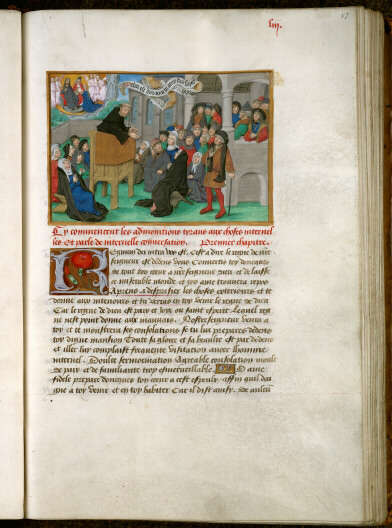 liij.
57
Cy commencent les admonitions tyrans aux choses internel
les Et parle de internelle conversation. Premier chapitre.
Regnum dei intra vos est. Cest a dire le regne de nostre
seigneur est dedens vous Convertis toy doncques
de tout ton cueur a nostre seigneur dieu et delaisse
ce miserable monde et ton ame trouvera repos
Aprens a despriser les choses exteriores et te
donne aux interiores et tu verras en toy venir le regne de dieu
Car le regne de dieu est paix et ioye ou saint esperit. Lequel regne
ne nest point donne aux mauvais. Nostre seigneur venra a
toy et te monstrera ses consolations se tu luy prepares dedens
toy digne mansion Toute sa gloire et sa beaulte est par dedens
et illec luy complaist frequente visitation avec lhomme
internel. Doulce sermocination Agreable consolation moult
de paix et de familiarite trop esmerveillable. O ame
fidele prepare doncques ton cueur a cest espeulx affin quil dai
gne a toy venir et en toy habiter Car il dist ainsy.